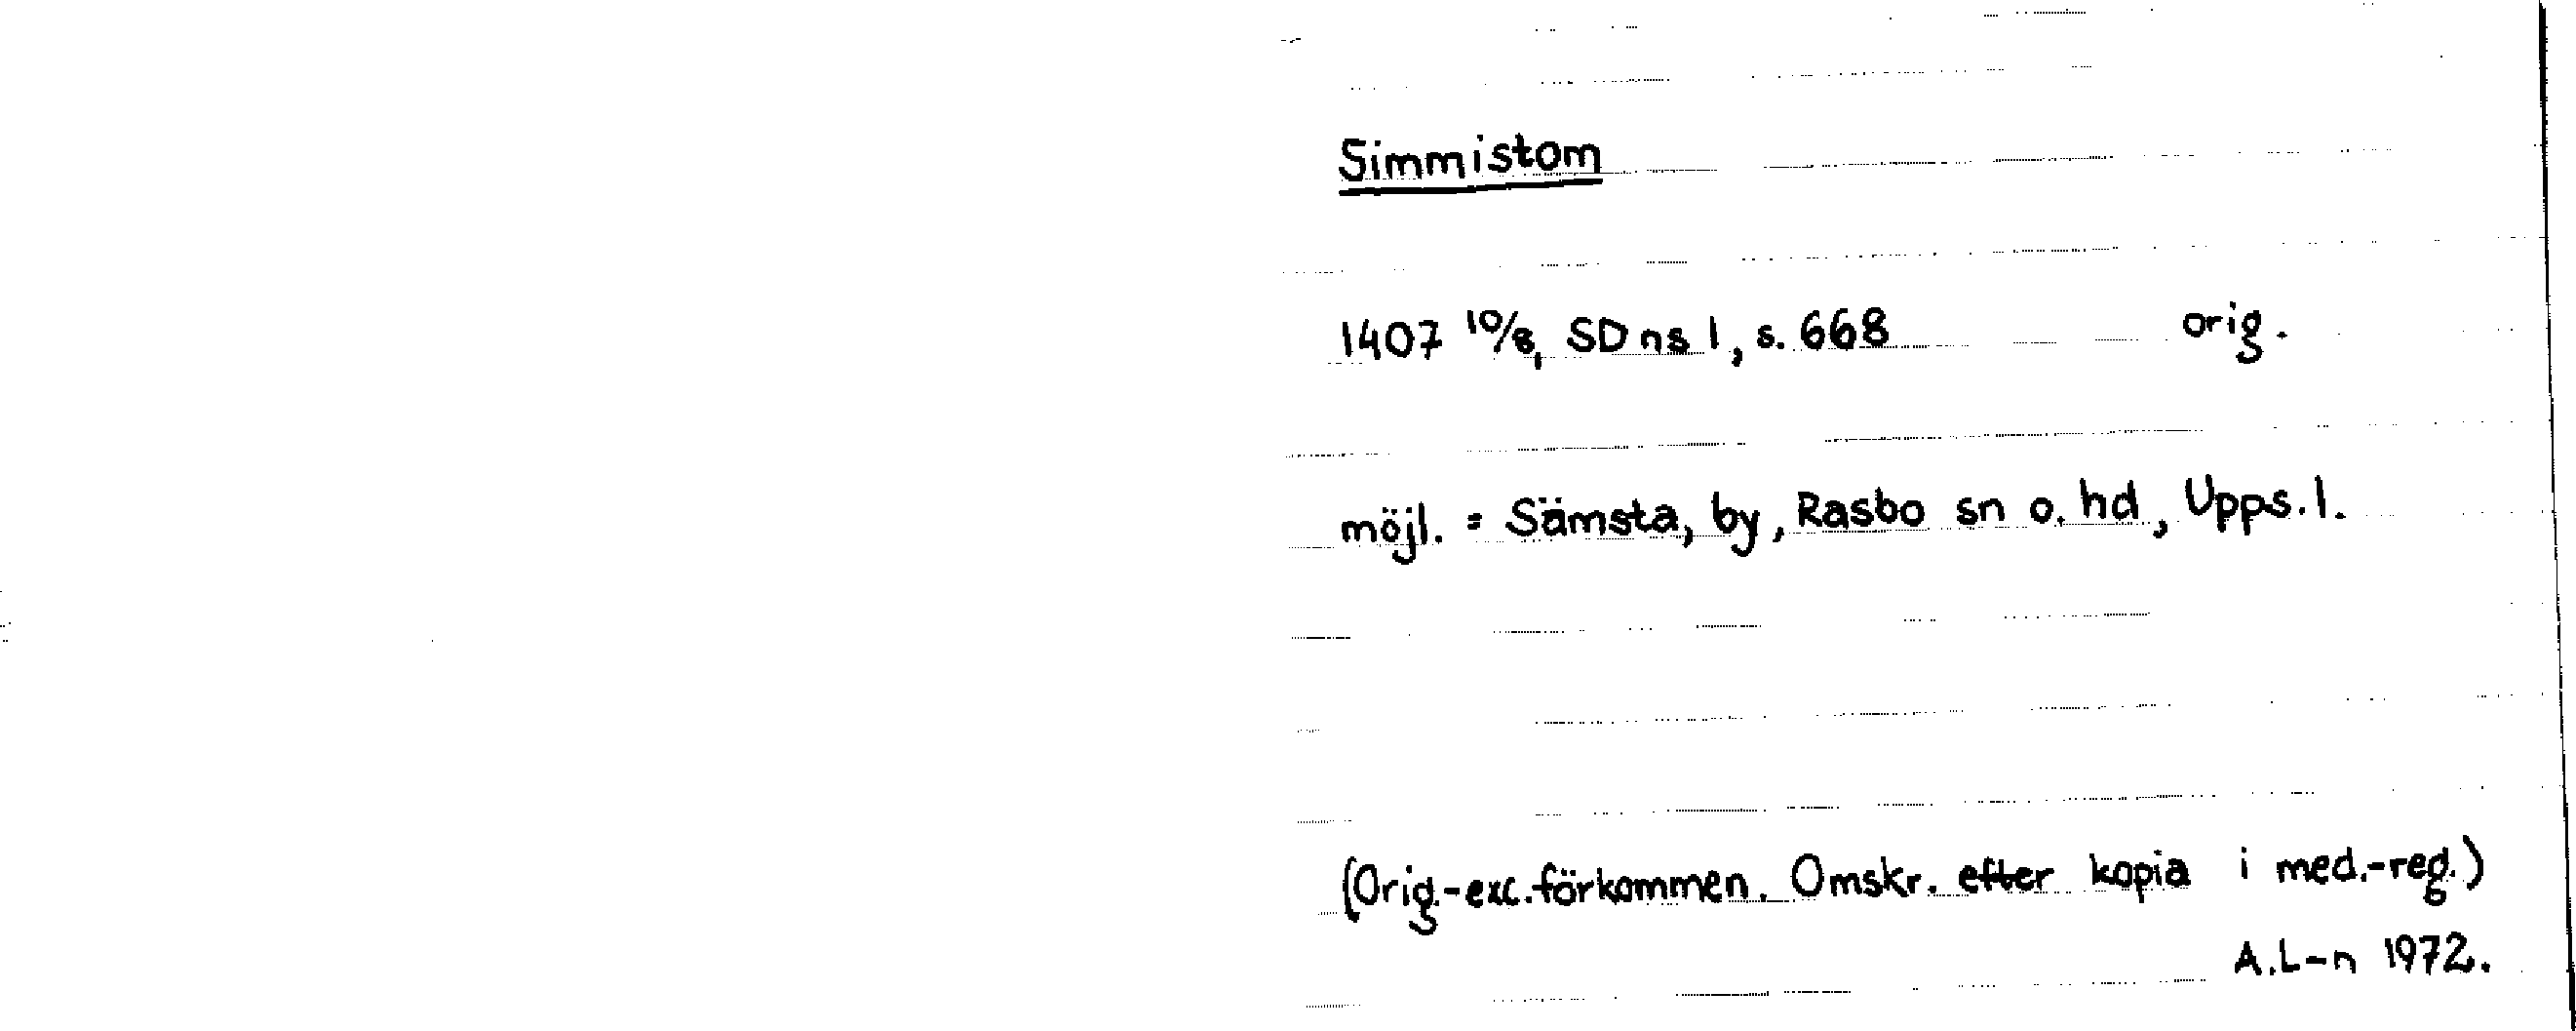 Simmistom
1407 10/8, SD ns 1, s. 668 orig.
möjl. = Sämsta, by, Rasbo sn o. hd, Upps. l.
(Orig.-exc. förkommen. Omskr. efter kopia i med.-reg.)
A.L-n 1972.